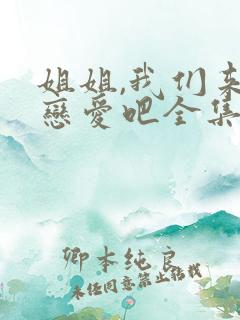 姐姐,我们来
戀愛吧全集
卿本纯良
未经同意禁止转载